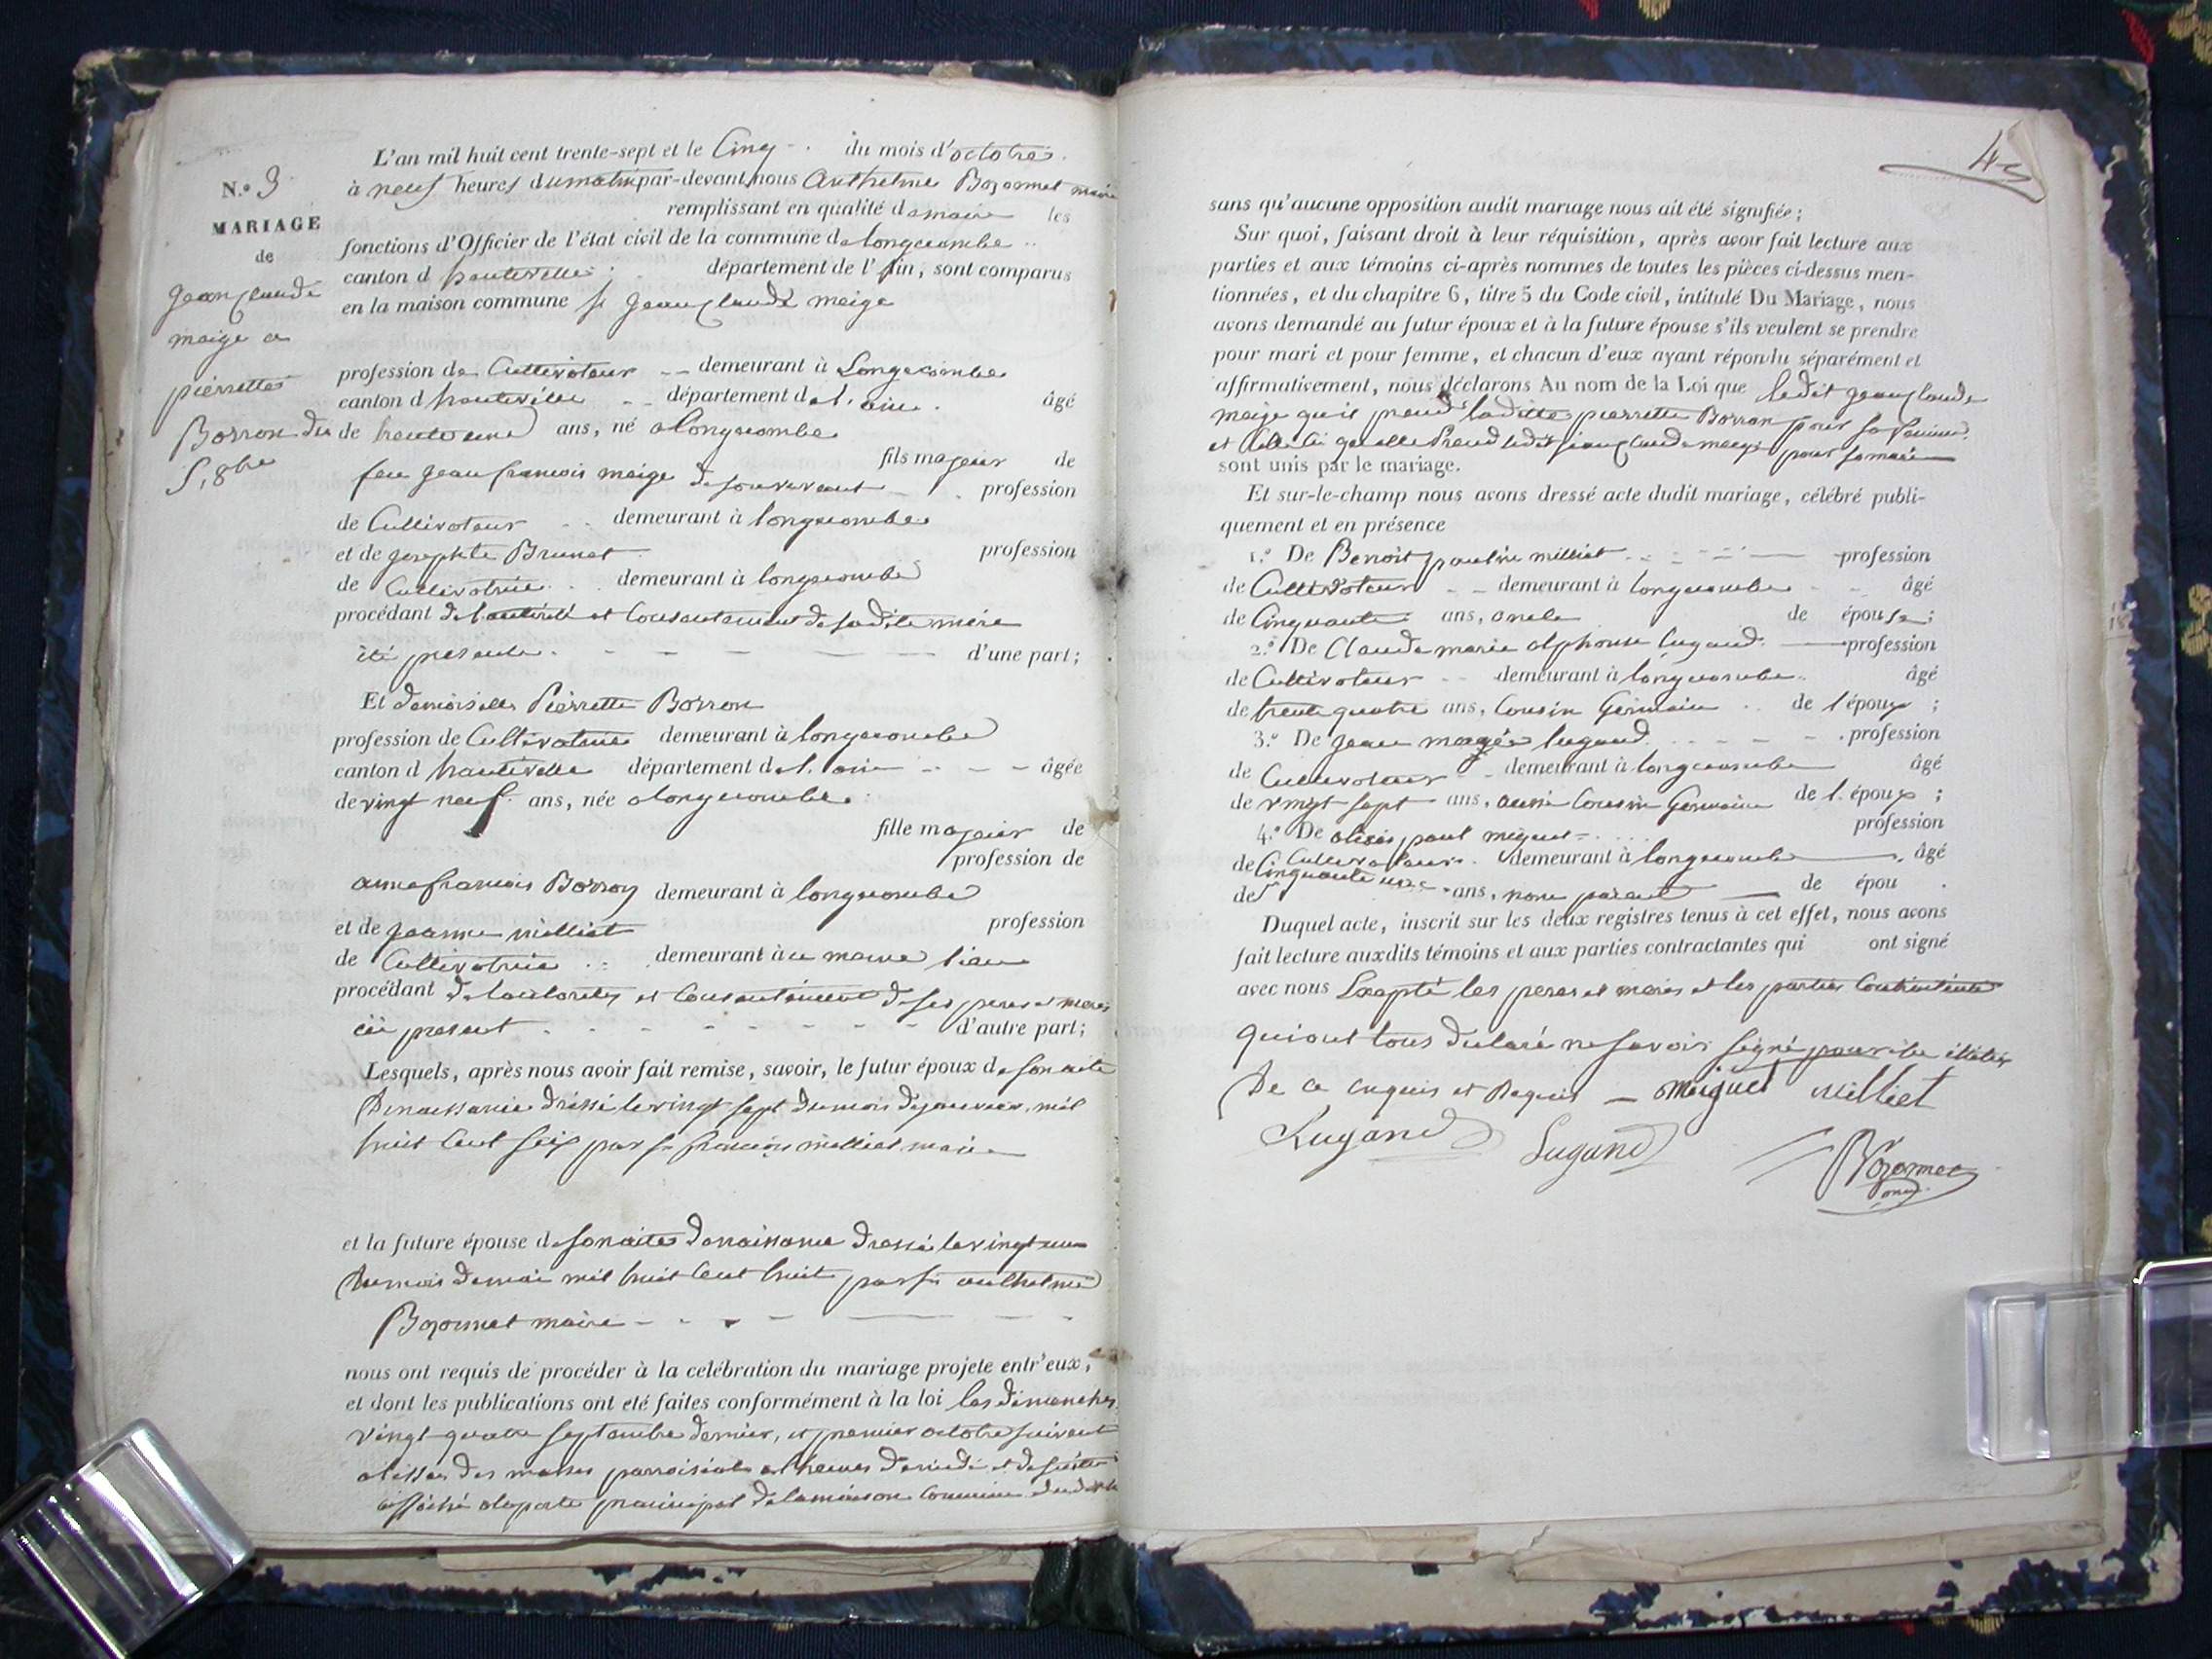 L'an mil huit cent trente-sept et le Cinq du mois d'octobre
N.º 3
à neuf heures du matin par-devant nous Anthelme Bozonnet maire
remplissant en qualité de maire les
MARIAGE
fonctions d'Officier de l'état civil de la commune de longecombe
de
canton d hauteville département de l'Ain, sont comparus
jean claude
en la maison commune sr jean claude meige
meige et
profession de Cultivateur demeurant à Longecombe
pierrette
canton d hauteville département de l'ain âgé
Borron du
de trente un ans, né a longecombe
5, 8bre
fils majeur de
feu jean francois meige de son vivant profession
de Cultivateur demeurant à longecombe
et de josephte Brunet profession
de Cultivatrice demeurant à longecombe
procédant de l'autorité et Consentement de sadite mère
ici presente d'une part;
Et demoiselle Pierrette Borron
profession de Cultivatrice demeurant à longecombe
canton d hauteville département de l'ain âgée
de vingt neuf ans, née a longecombe
fille majeur de
profession de
anne francois Borron demeurant à longecombe
et de jeanne milliet profession
de Cultivatrice demeurant à ce meme lieu
procédant de l'autorité et Consentement de ses peres et meres
ici present d'autre part;
Lesquels, après nous avoir fait remise, savoir, le futur époux de son acte
De naissance dressé le vingt sept du mois de janvier mil
huit Cent six par sr francois milliet maire
et la future épouse de son acte de naissance dressé le vingt un
du mois de mai mil huit Cent huit par sr anthelme
Bozonnet maire
nous ont requis de procéder à la celébration du mariage projeté entr'eux,
et dont les publications ont été faites conformément à la loi les dimanches
vingt quatre septembre dernier, et premier octobre suivant
a l'issue des messes parroisiale a l'heures de midi et
affiché a la porte principal de la maison Commune
4
sans qu'aucune opposition audit mariage nous ait été signifiée;
Sur quoi, faisant droit à leur réquisition, après avoir fait lecture aux
parties et aux témoins ci-après nommés de toutes les pièces ci-dessus men-
tionnées, et du chapitre 6, titre 5 du Code civil, intitulé Du Mariage, nous
avons demandé au futur époux et à la future épouse s'ils veulent se prendre
pour mari et pour femme, et chacun d'eux ayant répondu séparément et
affirmativement, nous déclarons Au nom de la Loi que ledit jean claude
meige qu'il prend laditte pierrette Borron pour sa femme
et Celle Ci qu'elle Prend ledit jean claude meige pour son mari
sont unis par le mariage.
Et sur-le-champ nous avons dressé acte dudit mariage, célébré publi-
quement et en présence
1.º De Benoit milliet profession
de Cultivateur demeurant à longecombe âgé
de Cinquante ans, oncle de épouse;
2.º De Claude marie alphonse Lugand profession
de Cultivateur demeurant à longecombe âgé
de trente quatre ans, Cousin Germain de l'époux;
3.º De jean lugand profession
de Cultivateur demeurant à longecombe âgé
de vingt sept ans, aussi Cousin Germain de l'époux;
4.º De alexis paul miguet profession
de Cultivateur demeurant à longecombe âgé
de Cinquante ans, non parent de épou
Duquel acte, inscrit sur les deux registres tenus à cet effet, nous avons
fait lecture auxdits témoins et aux parties contractantes qui ont signé
avec nous Excepté les peres et meres et les parties
qui ont tous déclaré ne savoir signé
De ce enquis et Requis miguet milliet
Lugand Lugand Bozonnet